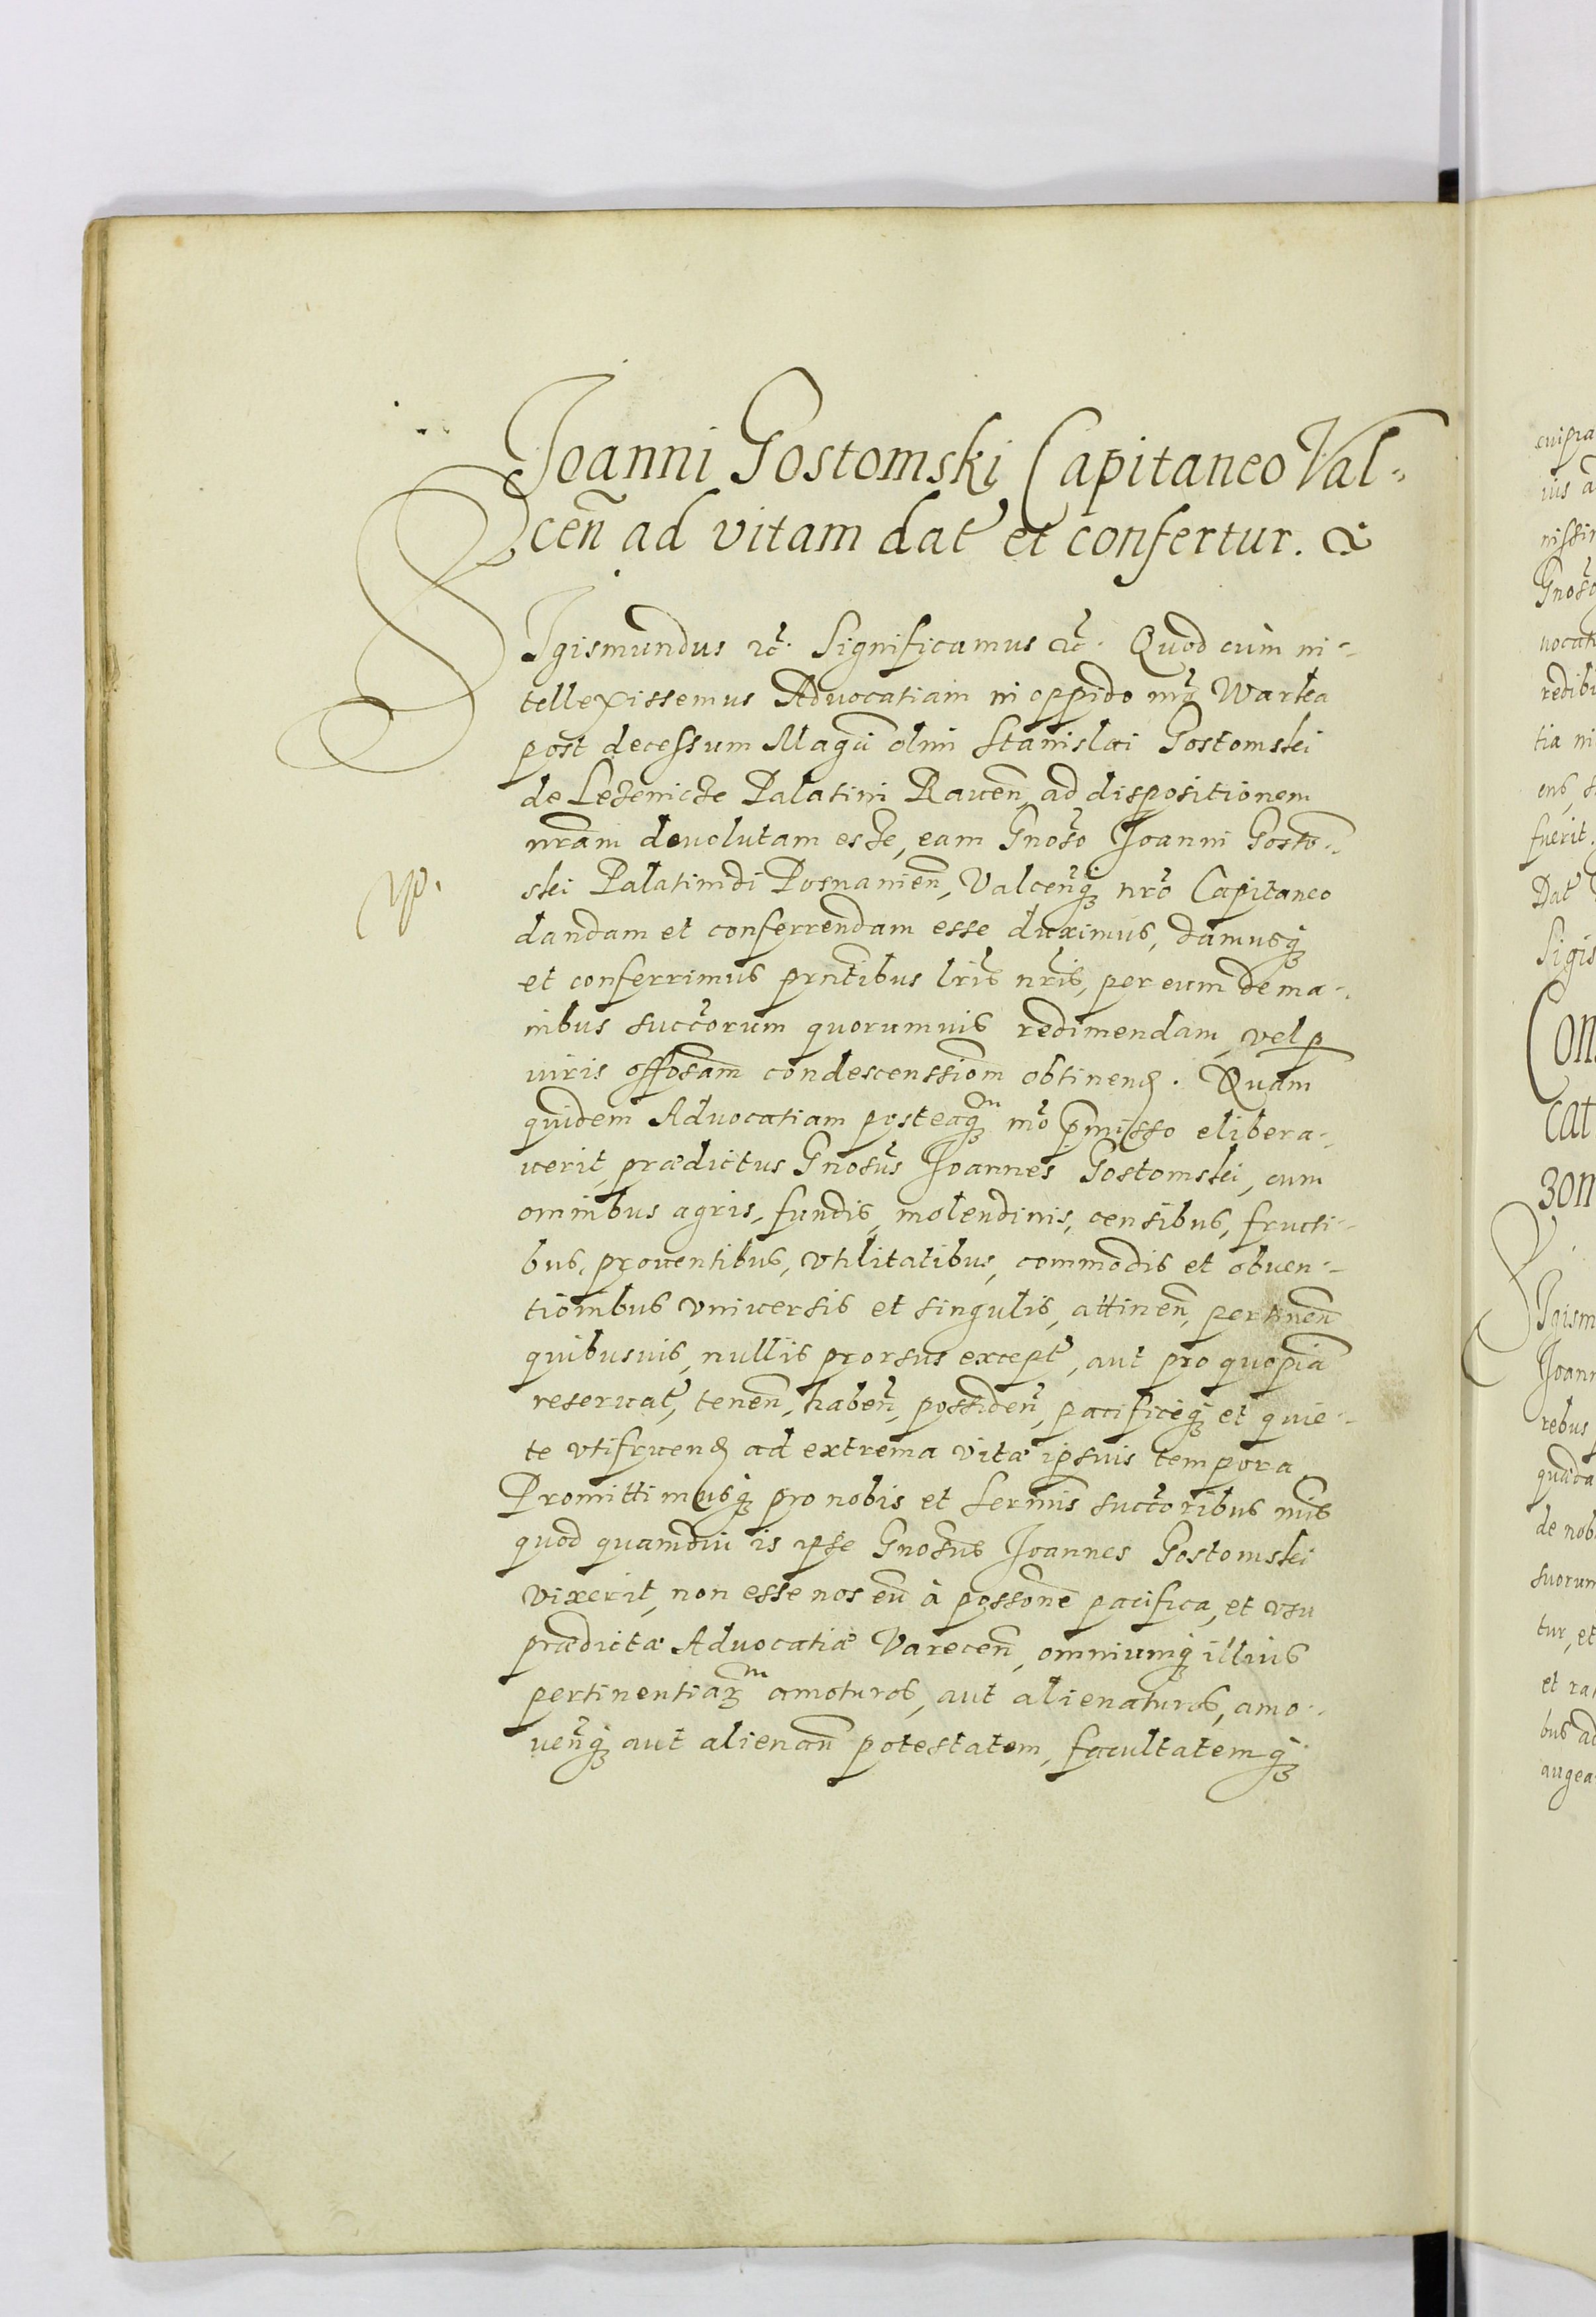 Joanni Gostomski Capitaneo Val-
cen̄ ad vitam dat et confertur. &
SIgismundus etc. Significamus etc. Quod cum in-
tellexissemus Advocatiam in oppido nr̄o Warka
post decessum Magci olim Stanislai Gostomski
de Lezenicze Palatini Raven̄, ad dispositionem
nr̄am devolutam esse, eam Gnoso Joanni Gosto-
ski Palatinidi Posnanien̄, Valcen̄q3 nr̄o Capitaneo
dandam et conferrendam esse duximus, damusq3
et conferrimus pr̄ntibus lr̄is nr̄is, per eum de ma-
nibus succ̄orum quorumvis redimendam, vel p
viris condescenssiom̄ obtinend. Quam
quidem Advocatiam posteaq3m mō p̄misso elibera-
verit, prædictus Gnosus Joannes Gostomski, cum
omnibus agris, fundis, molendinis, censibus, fructi-
bus, proventibus, vtilitatibus, commodis et obven-
tionibus vniversis et singulis, attinen̄, pertinen̄
quibusvis, nullis prorsus except, aut pro quopiā
reservat, tenen̄, haben̄, possiden̄, pacificeq3 et quie-
te vtifruend ad extrema vitæ ipsius tempora
Promittimusq3 pro nobis et Serm̄is succ̄oribus nr̄is
quod quamdiu is ipse Gnosus Joannes Gostomski
vixerit, non esse nos eū à possone pacifica, et vsu
prædictæ Advocatiæ Varecen̄, omniumq3 illius
pertinentiar3m amoturos, aut alienaturos, amo-
ven̄q3 aut alienan̄ potestatem, facultatemq3